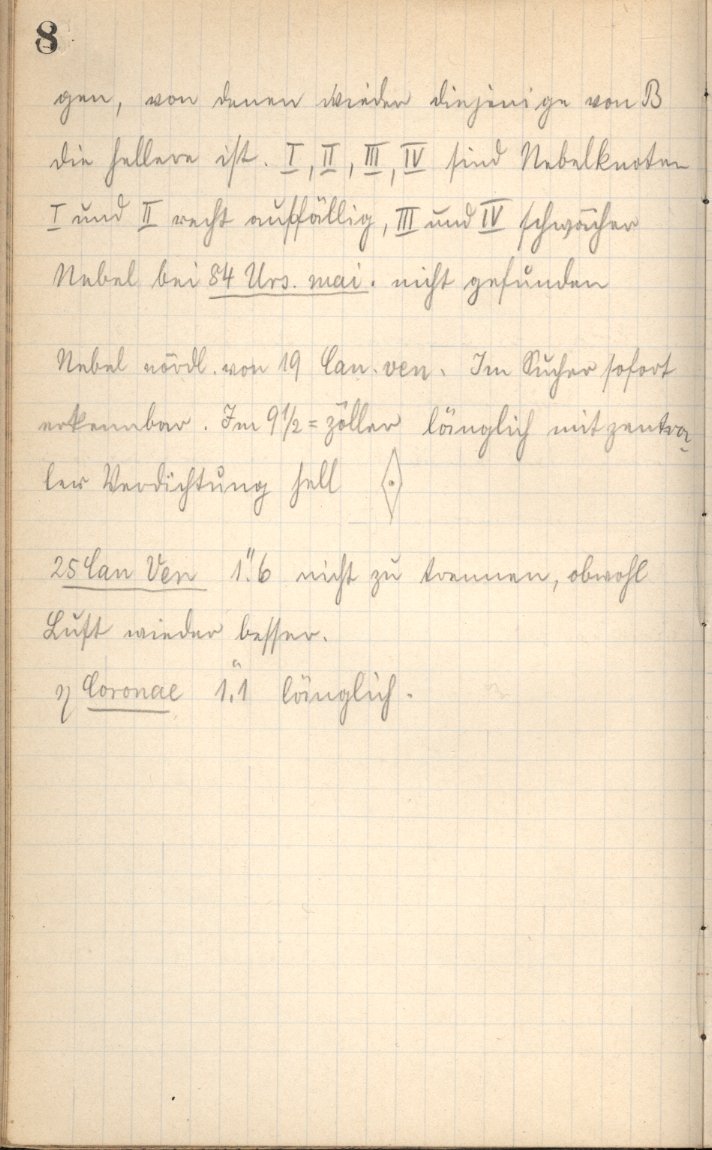 8
gen, von denen wieder diejenige von B
die hellere ist. I, II, III, IV sind Nebelknoten
I und II recht auffällig, III und IV schwächer
Nebel bei 84 Urs. mai. nicht gefunden
Nebel nördl. von 19 Can. ven. Im Sucher sofort
erkennbar. Im 9½=zöller länglich mit zentra-
ler Verdichtung hell
25 Can Ven 1."6 nicht zu trennen, obwohl
Luft wieder besser.
η Coronae 1."1 länglich.